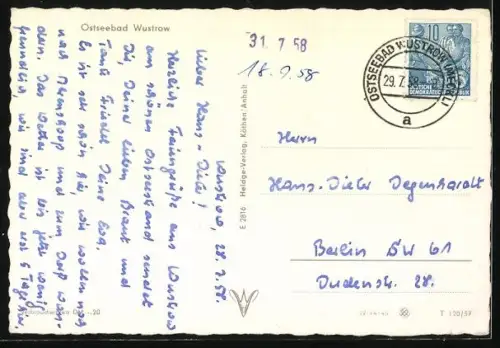 Ostseebad Wustrow
Wustrow, 28.7.58.
Lieber Hans-Dieter!
Herzliche Feriengrüße aus Wustrow
am schönen Ostseestrand sendet
Dir, Deiner lieben Braut und
Tante Friedel Deine Eva.
Es ist sehr schön hier, wir wollen noch
nach Ahrenshoop und zum Darß wan-
dern. Das Wetter ist bis jetzt wenig
freundlich, wir sind aber erst 5 Tage hier.
E 2816 Heldge-Verlag, Köthen/Anhalt
31.7.58
18.9.58
10
DEUTSCHE
DEMOKRATISCHE
OSTSEEBAD WUSTROW (MECKL)
29.7.58
a
Herrn
Hans-Dieter Degenhardt
Berlin SW 61
Dudenstr. 28.